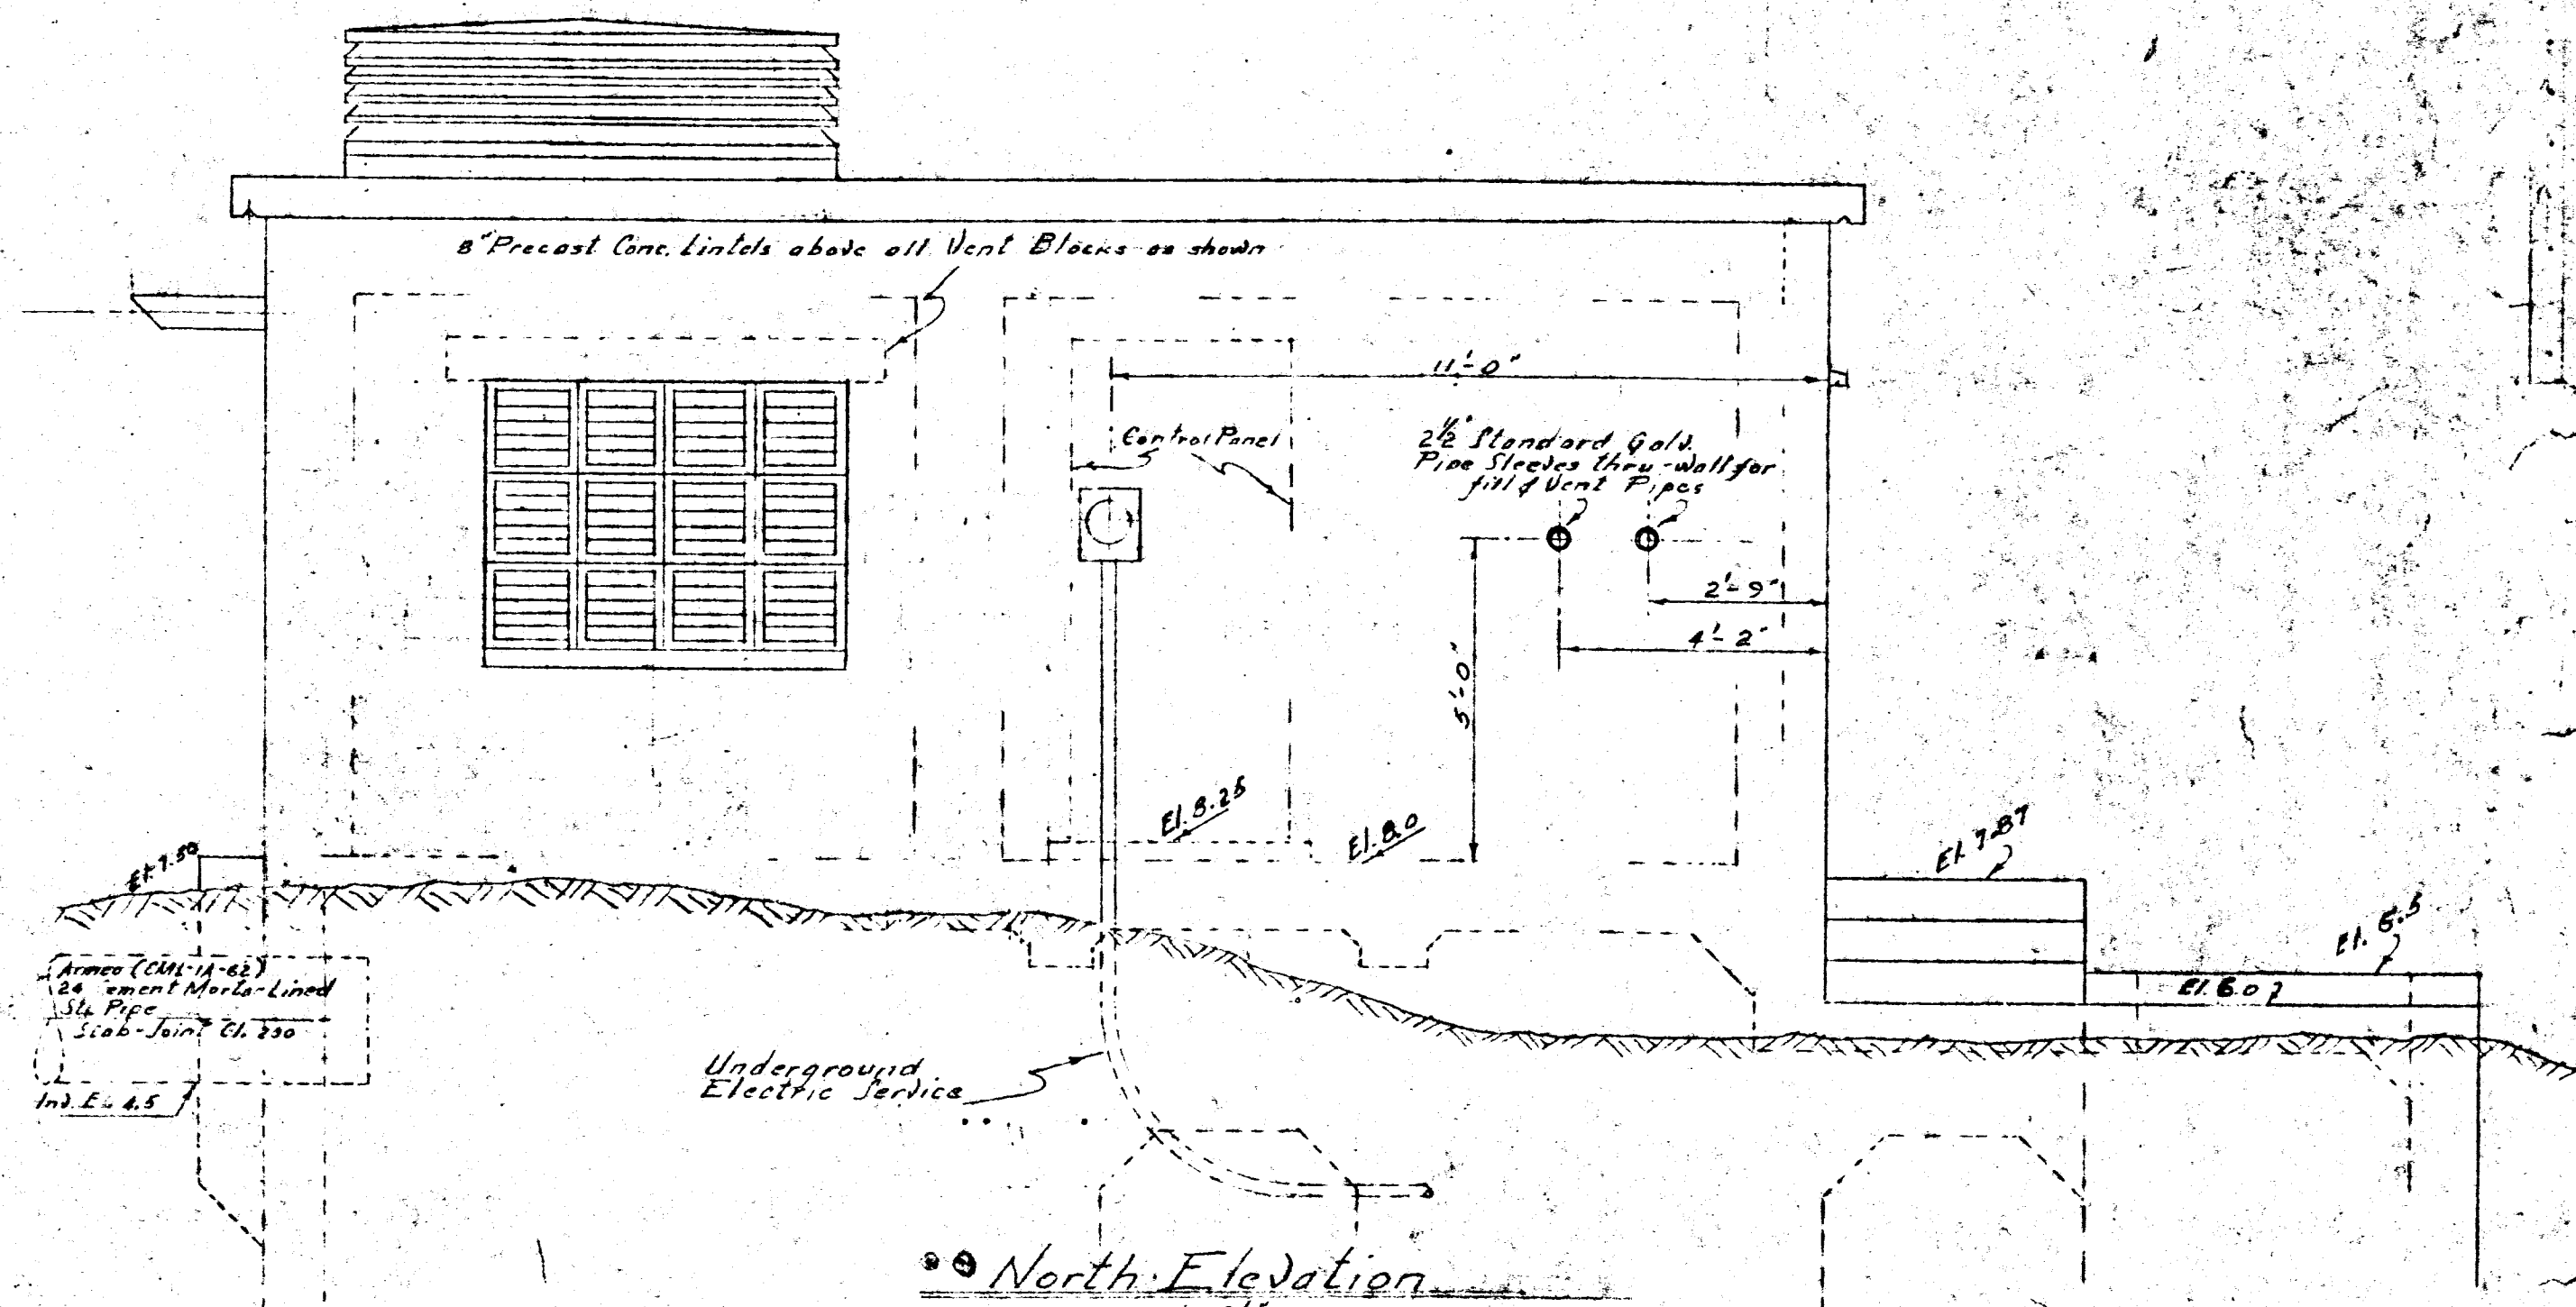 8" Precast Conc. Lintels above all Vent Blocks as shown
11'-0"
Control Panel
2½" Standard Galv.
Pipe Sleeves thru-wall for
fill & Vent Pipes
2'-9"
4'-2"
5'-0"
El. 8.25
El. 8.0
El. 7.87
El. 7.50
El. 6.5
El. 6.07
Armco (CML-1A-62)
24 ement Mortar Lined
Stl. Pipe
Slab-Joint Cl. 230
Inv. El. 4.5
Underground
Electric Service
North Elevation